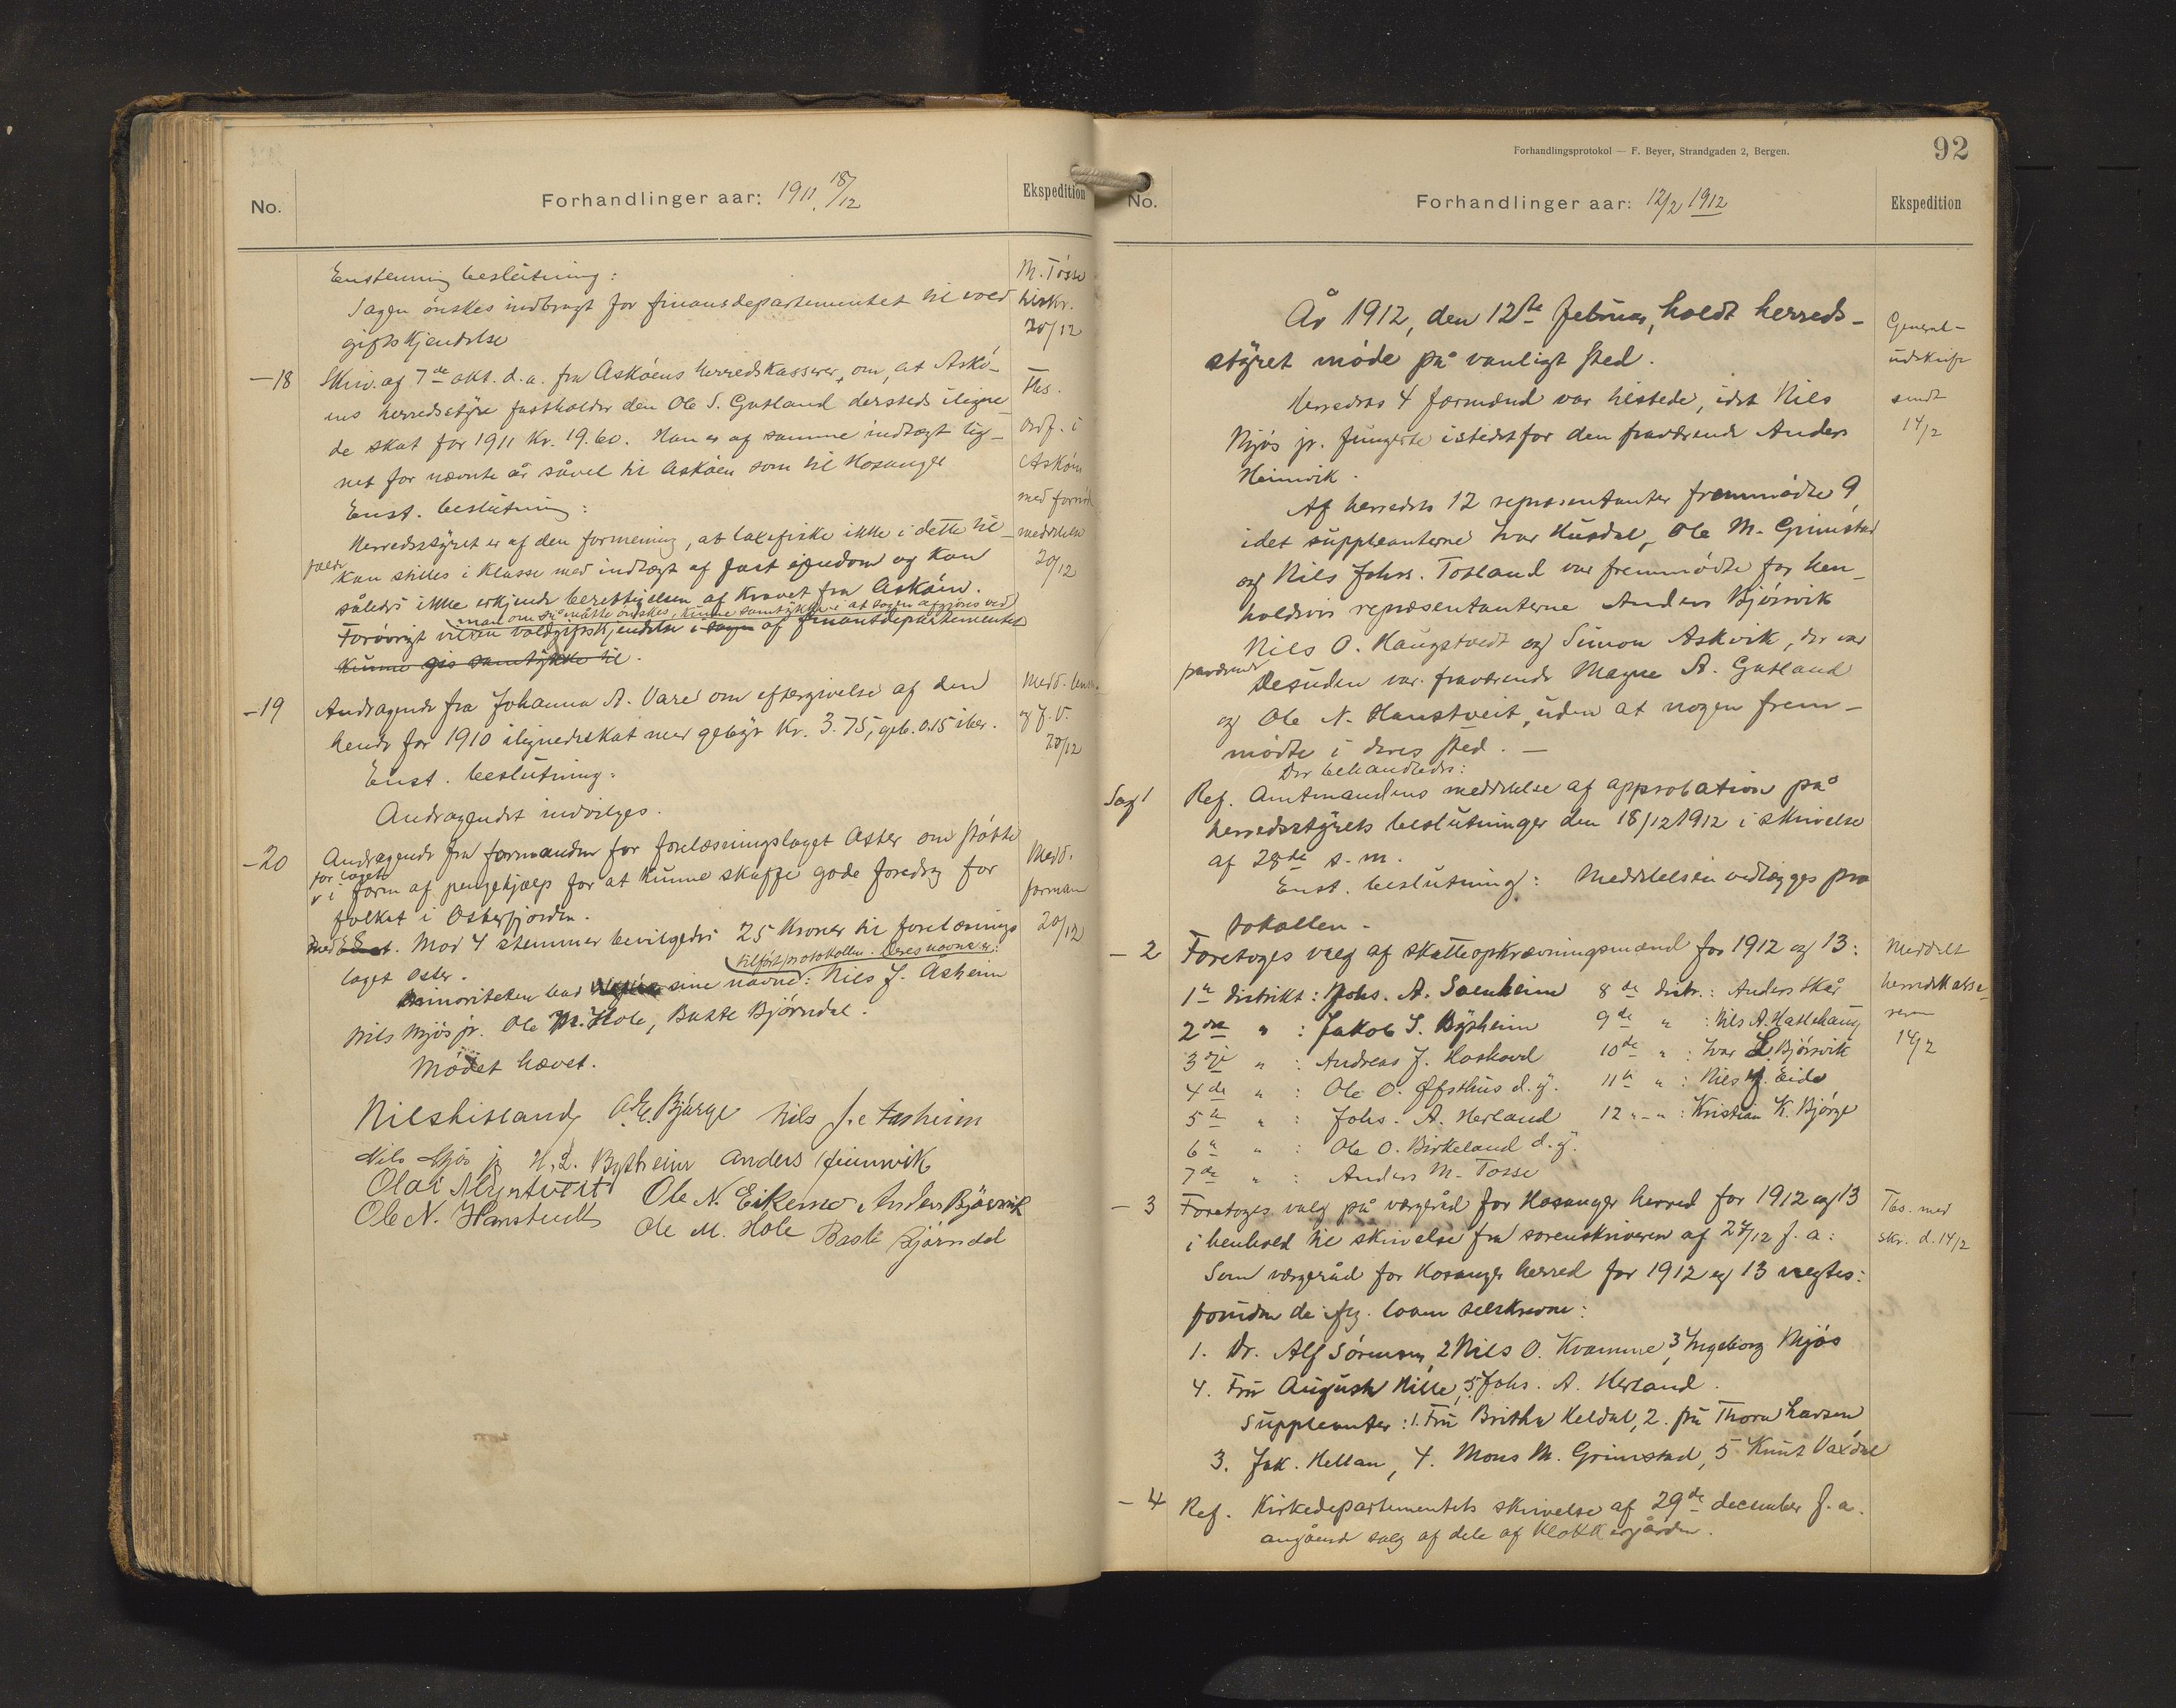 No.
Forhandlinger aar: 1911. 18/12
Ekspedition
Enstemmig beslutning:
Sagen ønskes indbragt for finansdepartementet til vold
giftskjendelse
M. Tosse
tilskr.
20/12
-18 Skriv. af 7de okt. d.a. fra Askøens herredskasserer, om, at Askø-
ens herredsstyre fastholder den Ole S. Gutland dersteds iligne
de skat for 1911 Kr. 19.60. Han er af samme indtægt lig-
net for nævnte år såvel til Askøen som til Hosanger
Enst. beslutning:
Herredsstyret er af den formening, at laxefiske ikke i dette til-
fælde kan stilles i klasse med indtægt af fast ejendom og kan
således ikke erkjende berettigelsen af kravet fra Askøen.
man om så måtte ønskes, kunne samtykke i at sagen afgjøres ved
Forøvrigt vil en voldgiftskjendelse i sagen af finansdepartementet
kunne gis samtykke til.
Tbs.
ordf. i
Askøen
med
meddelelse
20/12
-19 Andragende fra Johanna A. Vare om eftergivelse af den
hende for 1910 ilignedeskat med gebyr Kr. 3.75, geb. 0.15 iber.
Enst. beslutning:
Andragendet indvilges.
Medd.
og J. V.
20/12
-20 Andragende fra formanden for forelæsningslaget Oster om støtte
for laget
i form af pengehjælp for at kunne skaffe gode foredrag for
folket i Osterfjorden.
Med Enst. Mod 4 stemmer bevilgedes 25 Kroner til forelæsnings
laget Oster.
tilført protokollen. Deres navne er:
Minoriteten bad sine navne: Nils J. Åsheim
Nils Mjøs jr. Ole M. Hole, Bakte Bjørndal.
Mødet hævet.
Medd.
forman
20/12
Nils Mjøs jr H. L. Bysheim Anders Heimvik
Ole N. Eikemo Anders Bjørsvik
Ole N. Hanstvedt Ole M. Hole Bakte Bjørndal
Forhandlingsprotokol — F. Beyer, Strandgaden 2, Bergen.
92
No.
Forhandlinger aar: 12/2 1912
Ekspedition
År 1912, den 12te februar, holdt herreds-
styret møde på vanligt sted.
Herredets 4 formænd var tilstede, idet Nils
Mjøs jr. fungerte istedetfor den fraværende Anders
Heimvik.
Af herredets 12 repræsentanter fremmødte 9,
idet suppleanterne Ivar Husdal, Ole M. Grimstad
og Nils Johs. Tosland var fremmødte for hen-
holdsvis repræsentanterne Anders Bjørsvik
Nils O. Haugstvedt og Simon Askvik, der var
fraværende
Desuden var fraværende Magne A. Gutland
og Ole N. Hanstveit, uden at nogen frem-
mødte i deres sted. —
Der behandledes:
General-
udskrift
sendt
14/2
Sag 1 Ref. Amtmandens meddelelse af approbation på
herredsstyrets beslutninger den 18/12 1912 i skrivelse
af 28de s.m.
Enst. beslutning: Meddelelsen vedlægges pro
tokollen.
- 2 Foretoges valg af skatteopkrævningsmænd for 1912 og 13:
1te distrikt: Johs. A. Soenheim 8de distr.: Anders Skår
2det " : Jakob S. Bysheim 9de " : Nils A. Hatlehaug
3dje " : Andreas J. Hoshovd 10de " : Ivar L. Bjørsvik
4de " : Ole O. Øfsthus d.y. 11te " : Nils J. Eide
5te " : Johs. A. Herland 12 " - " : Kristian K. Bjørge
6te " : Ole O. Birkeland d.y.
7de " : Anders M. Tosse
Meddelt
herredskasse-
reren
14/2
- 3 Foretoges valg på vergeråd for Hosanger herred for 1912 og 13
i henhold til skrivelse fra sorenskriveren af 27/12 f.a:
Som vergeråd for Hosanger herred for 1912 og 13 valgtes:
foruden de ifg. loven selvskrevne:
1. Dr. Alf Sørensen, 2 Nils O. Kvamme, 3 Ingeborg Mjøs
4. Fru Augusta Nille, 5 Johs. A. Herland.
Suppleanter: 1. Fru Britha Keldal, 2. fru Thora Larsen
3. Jak. Hellan, 4. Mons M. Grimstad, 5 Knut Vaxdal
Tbs. med
skr. d. 14/2
- 4 Ref. Kirkedepartementets skrivelse af 29de december f.a.
angående salg af dele af Klokkergården.